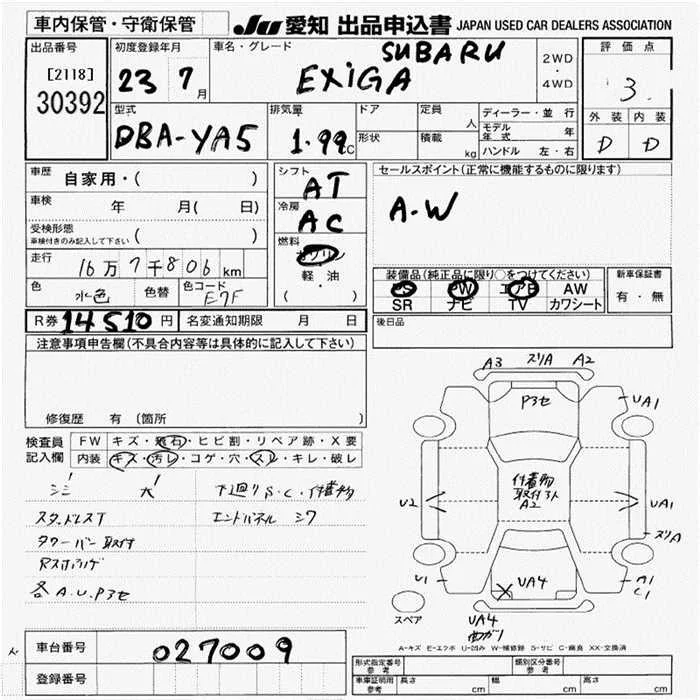 車内保管・守衛保管
JU 愛知 出品申込書 JAPAN USED CAR DEALERS ASSOCIATION
出品番号
[2118]
30392
初度登録年月
23 7 月
車名・グレード
SUBARU
EXiGA
2WD
・
4WD
評価点
3
外装 内装
D D
型式
DBA-YA5
排気量
1.99 cc
ドア
形状
定員 人
積載 kg
ディーラー・並行
モデル年式 年
ハンドル 左・右
車歴 自家用・( )
車検 年 月( 日)
受検形態
車検付きのみ記入して下さい ( )
走行 16万7千806 km
色 水色 色替 色コード E7F
シフト
AT
冷房
AC
燃料
ガソリン
軽・油
( )
セールスポイント(正常に機能するものに限ります)
A-W
装備品(純正品に限り○をつけてください)
PS PW エアB AW
SR ナビ TV カワシート
新車保証書
有・無
R券 14510 円 名変通知期限 月 日
後日品
注意事項申告欄(不具合内容等は具体的に記入して下さい)
修復歴 有 〔箇所 〕
検査員記入欄
FW キズ・飛石・ヒビ割・リペア跡・X要
内装 キズ・汚レ・コゲ・穴・スレ・キレ・破レ
下廻りS.C.付着物
スタッドレスT エンドパネル シワ
タワーバー取付
各A.U.P3セ
A3 スリA A2
P3セ
UA1
付着物
取付多
A2
U2
UA1
スリA
U1
UA4
A1
C1
スペア
UA4
曲ガリ
A-キズ E-エクボ U-凹み W-補修跡 S-サビ C-腐食 XX-交換済
車台番号 027009
登録番号
形式指定番号 参考
類別区分番号 参考
車庫証明用 参考 長さ cm 幅 cm 高さ cm